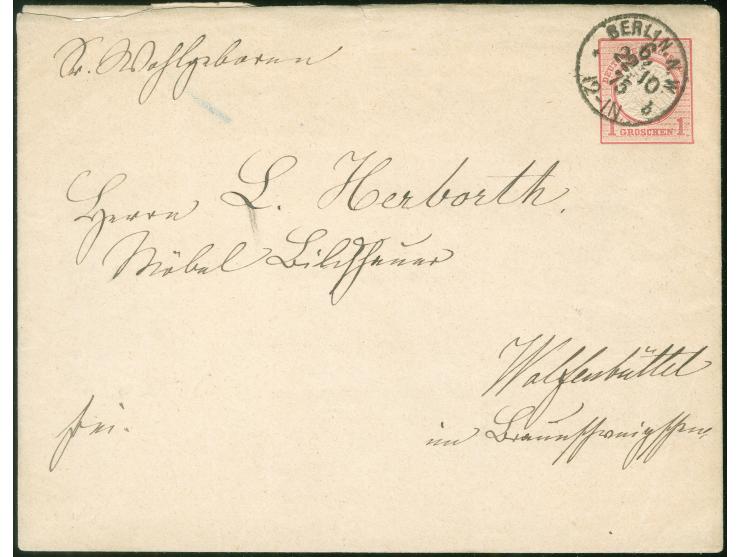 Sr. Wohlgeboren
BERLIN. N.W.
26 10
75
12-1N
b
1 GROSCHEN 1
Herrn L. Herborth.
Möbel Bildhauer
Wolfenbüttel
frei.
im Braunschweigschen